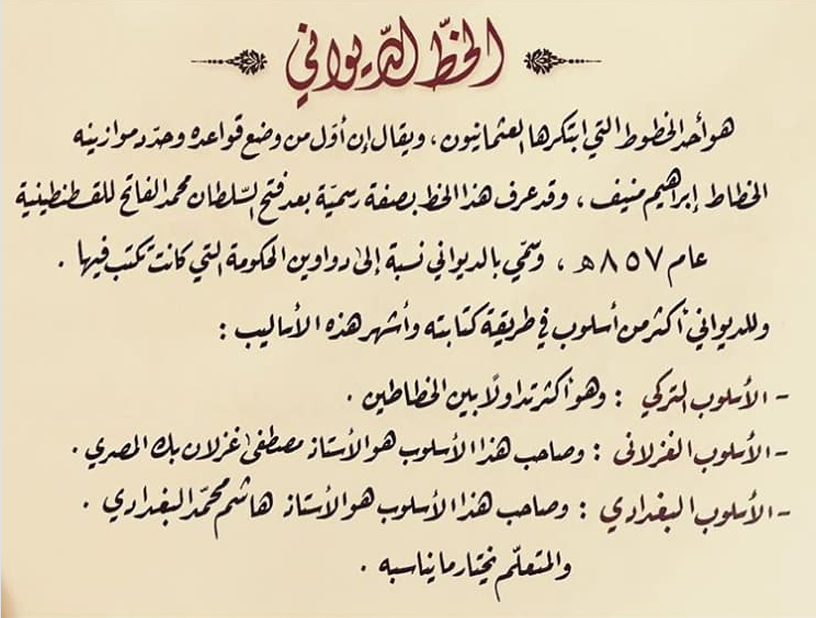 الخطّ الديواني
هو أحد الخطوط التي ابتكرها العثمانيون ، ويقال إن أوّل من وضع قواعده وحدّد موازينه
الخطاط إبراهيم منيف ، وقد عرف هذا الخط بصفة رسميّة بعد فتح السّلطان محمد الفاتح للقسطنطينية
عام ٨٥٧هـ ، وسمّي بالديواني نسبة إلى دواوين الحكومة التي كانت تكتب فيها .
وللديواني أكثر من أسلوب في طريقة كتابته وأشهر هذه الأساليب :
- الأسلوب التركي : وهو أكثر تداولًا بين الخطاطين .
- الأسلوب الغزلاني : وصاحب هذا الأسلوب هو الأستاذ مصطفى غزلان بك المصري .
- الأسلوب البغدادي : وصاحب هذا الأسلوب هو الأستاذ هاشم محمّد البغدادي .
والمتعلّم يختار ما يناسبه .